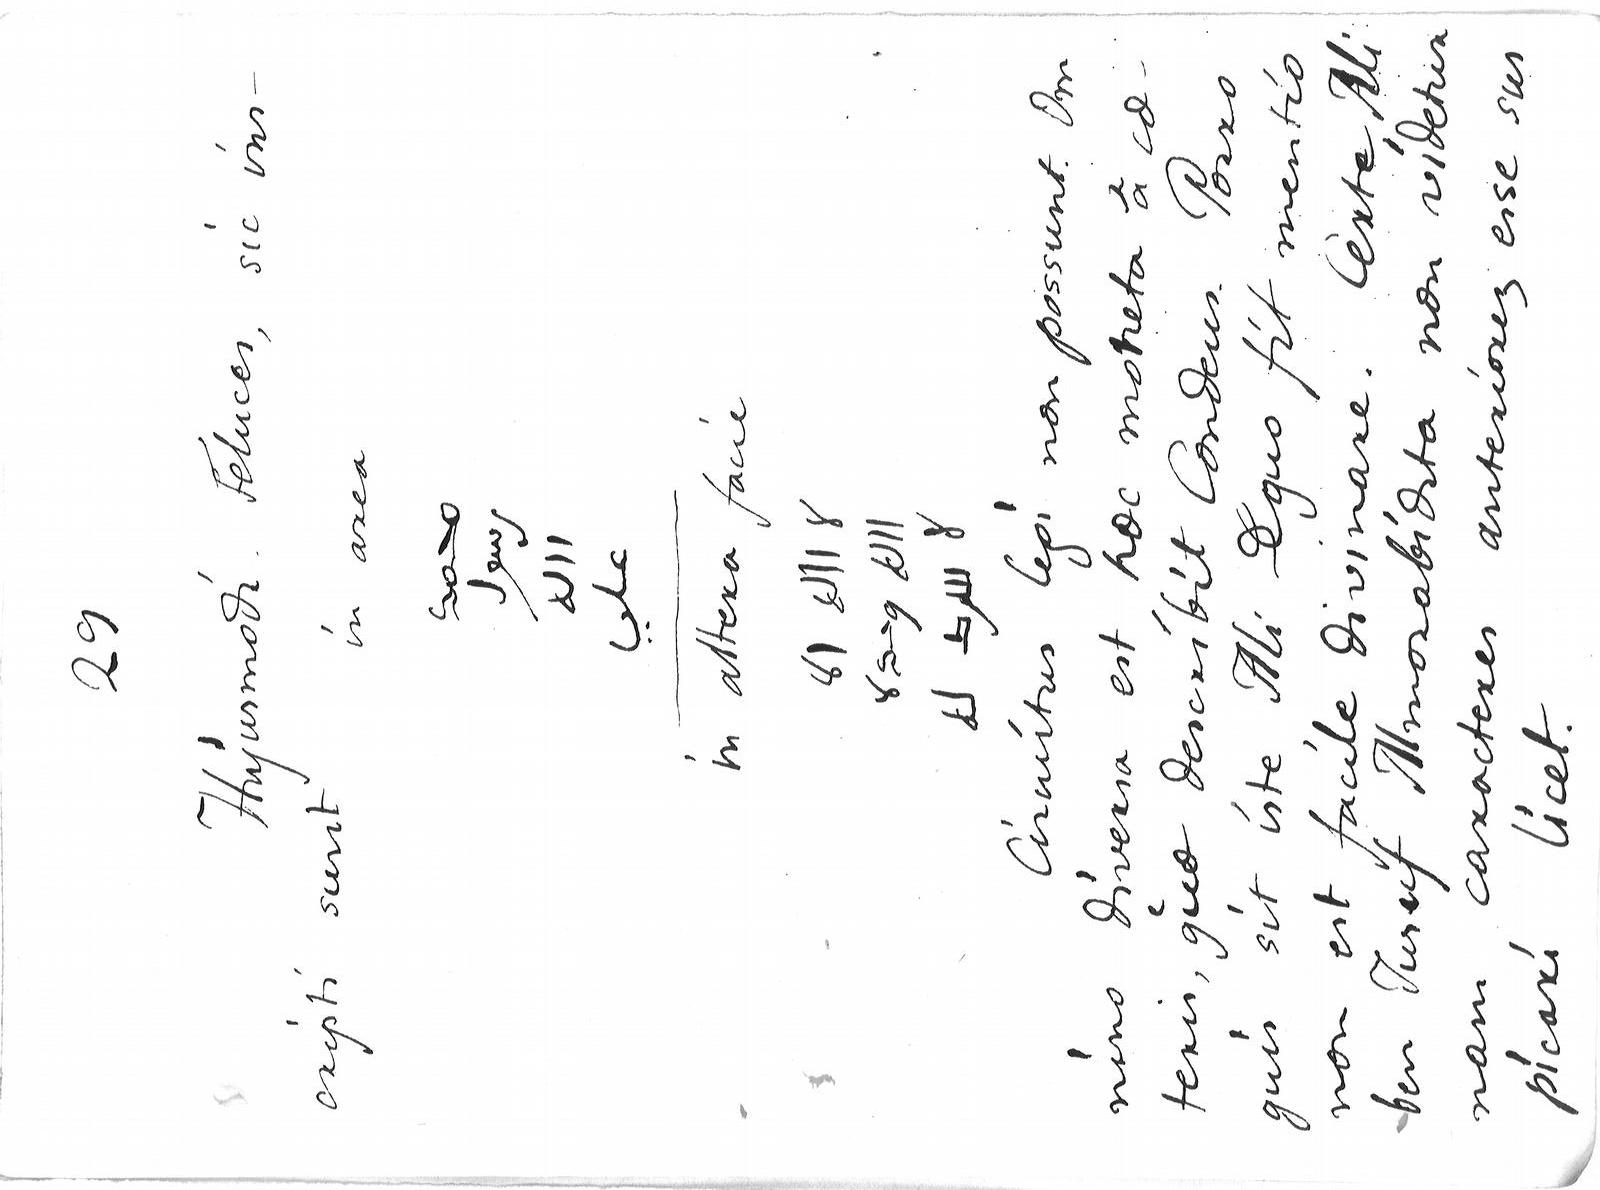 29
Hujusmodi Feluces, sic ins-
cripti sunt in area
محمد
رسول
الله
علي
in altera facie
لا اله الا
الله
Circuitus legi non possunt. Om
nino diversa est hoc moneta à ce-
teris, quas describit Condeus. Porro
quis sit iste Ali de quo fit mentio
non est facile divinare. Certe Ali
ben Jusuf Almorabidita non videtur
nam caracteres anteriores esse sus
picari licet.